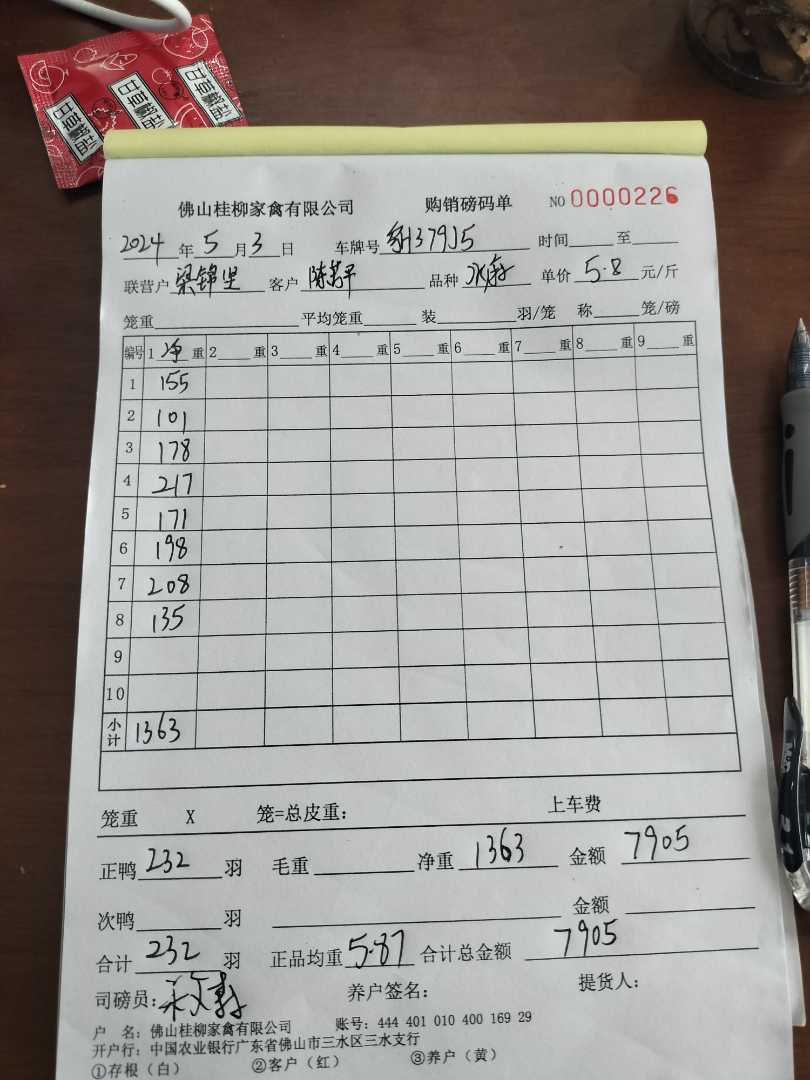 甘草
甘草
甘草
佛山桂柳家禽有限公司 购销磅码单 NO 0000226
2024 年 5 月 3 日 车牌号 H379J5 时间 至
联营户 梁锦坚 客户 陈 平 品种 水 单价 5.8 元/斤
笼重 平均笼重 装 羽/笼 称 笼/磅
编号 1 净 重 2 重 3 重 4 重 5 重 6 重 7 重 8 重 9 重
1 155
2 101
3 178
4 217
5 171
6 198
7 208
8 135
9
10
小计 1363
笼重 X 笼=总皮重: 上车费
正鸭 232 羽 毛重 净重 1363 金额 7905
次鸭 羽 金额
合计 232 羽 正品均重 5.87 合计总金额 7905
司磅员: 养户签名: 提货人:
户 名: 佛山桂柳家禽有限公司 账号: 444 401 010 400 169 29
开户行: 中国农业银行广东省佛山市三水区三水支行
①存根（白） ②客户（红） ③养户（黄）